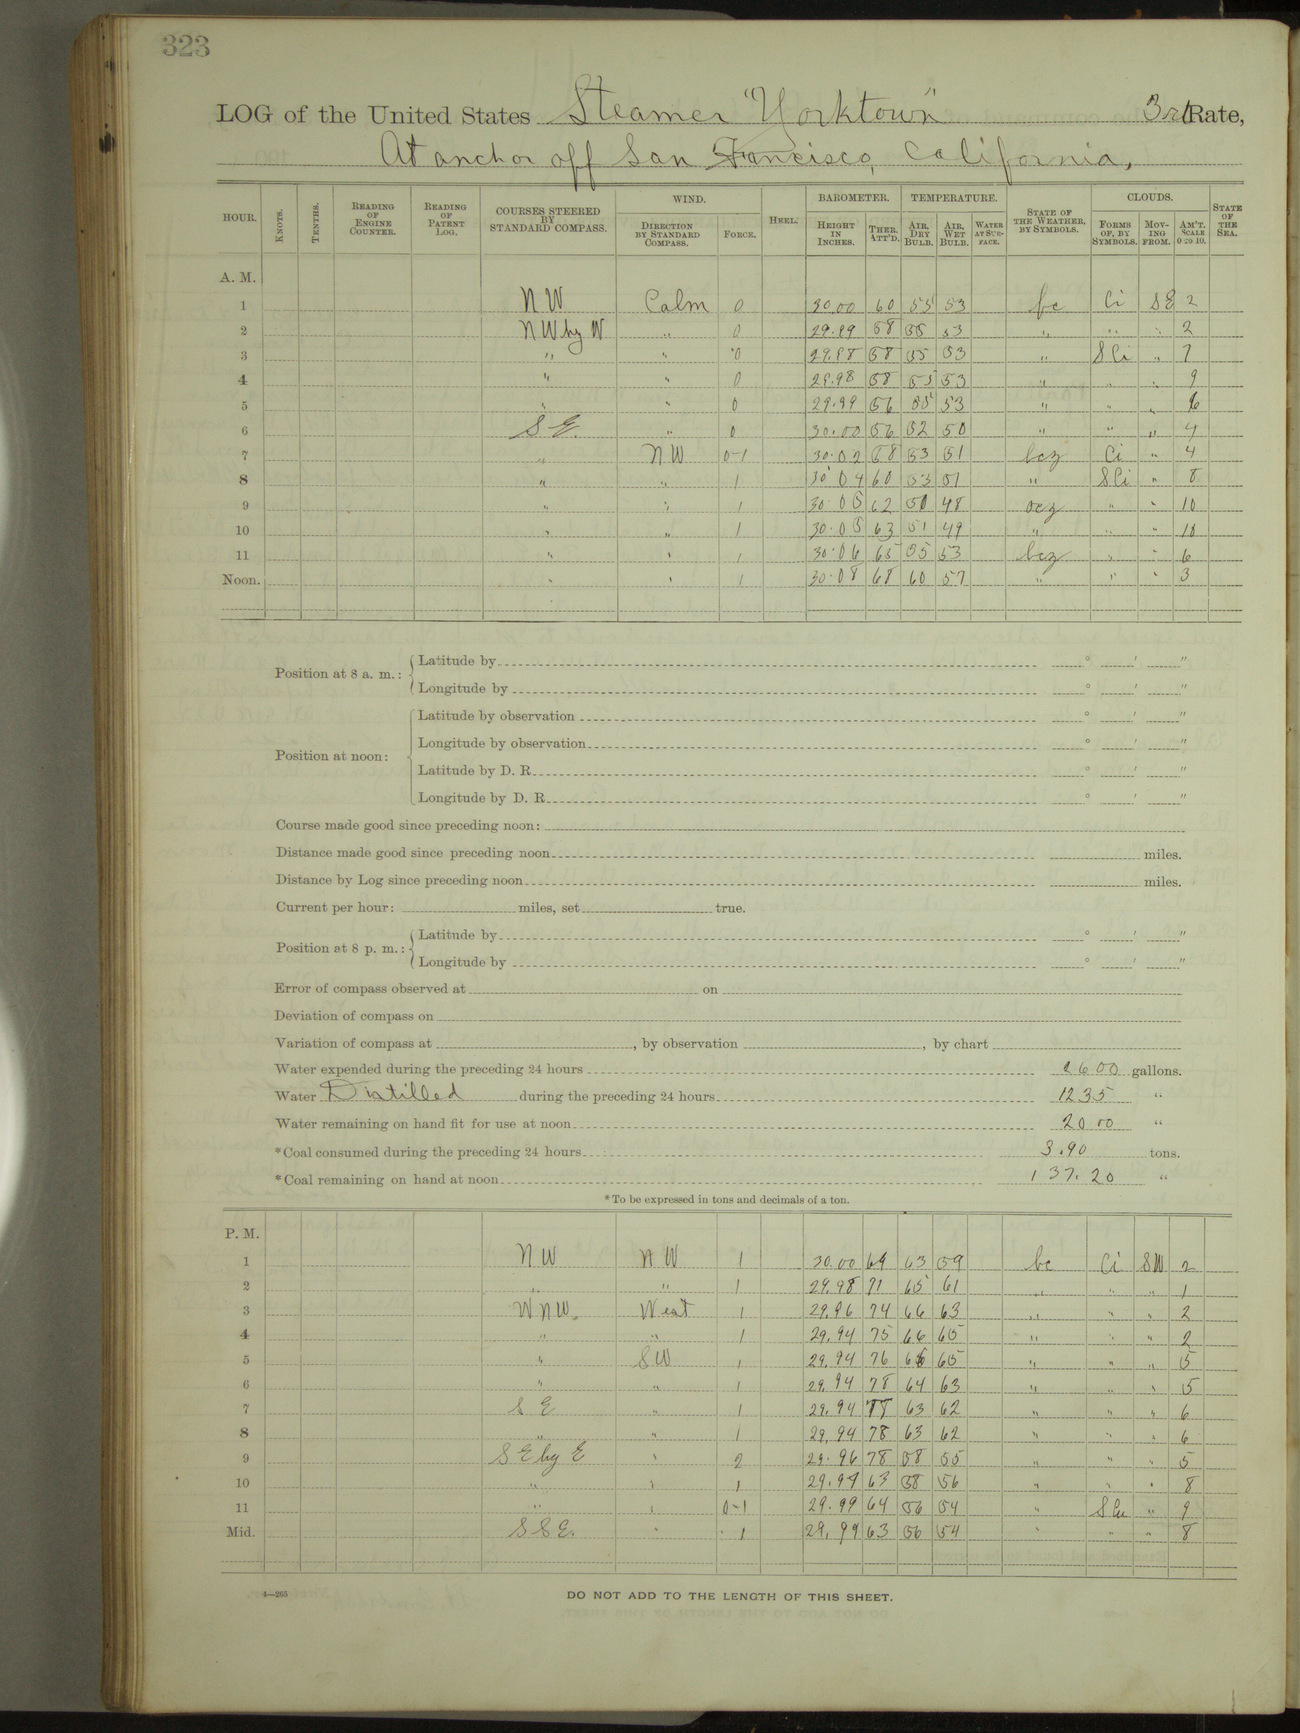 323
LOG of the United States Steamer "Yorktown" 3rd Rate,
At anchor off San Francisco, California,
HOUR. KNOTS. TENTHS. READING OF ENGINE COUNTER. READING OF PATENT LOG. COURSES STEERED BY STANDARD COMPASS. WIND. DIRECTION BY STANDARD COMPASS. FORCE. HEEL. BAROMETER. HEIGHT IN INCHES. THER. ATT'D. TEMPERATURE. AIR, DRY BULB. AIR, WET BULB. WATER AT SURFACE. STATE OF THE WEATHER, BY SYMBOLS. CLOUDS. FORMS OF, BY SYMBOLS. MOVING FROM. AM'T, SCALE 0 TO 10. STATE OF THE SEA.
A. M.
1 NW Calm 0 30.00 60 55 53 bc Ci SE 2
2 NW by W " 0 29.99 58 55 53 " " " 2
3 " " 0 29.98 58 55 53 " S Ci " 7
4 " " 0 29.98 58 55 53 " " " 9
5 " " 0 29.99 56 55 53 " " " 6
6 S E. " 0 30.00 56 52 50 " " " 4
7 " NW 0-1 30.02 58 53 51 bcz Ci " 4
8 " " 1 30.04 60 53 51 " S Ci " 8
9 " " 1 30.05 62 50 48 ocz " " 10
10 " " 1 30.05 63 51 49 " " " 10
11 " " 1 30.06 65 55 53 bcz " " 6
Noon. " " 1 30.08 68 60 57 " " " 3
Position at 8 a. m.: Latitude by ° ' "
Longitude by ° ' "
Position at noon: Latitude by observation ° ' "
Longitude by observation ° ' "
Latitude by D. R. ° ' "
Longitude by D. R. ° ' "
Course made good since preceding noon:
Distance made good since preceding noon miles.
Distance by Log since preceding noon miles.
Current per hour: miles, set true.
Position at 8 p. m.: Latitude by ° ' "
Longitude by ° ' "
Error of compass observed at on
Deviation of compass on
Variation of compass at , by observation , by chart
Water expended during the preceding 24 hours 2600 gallons.
Water Distilled during the preceding 24 hours 1235 "
Water remaining on hand fit for use at noon 2000 "
*Coal consumed during the preceding 24 hours 3.90 tons.
*Coal remaining on hand at noon 137.20 "
*To be expressed in tons and decimals of a ton.
P. M.
1 NW NW 1 30.00 69 63 59 bc Ci SW 2
2 " " 1 29.98 71 65 61 " " " 1
3 WNW. West 1 29.96 74 66 63 " " " 2
4 " " 1 29.94 75 66 65 " " " 2
5 " SW 1 29.94 76 65 " " " 5
6 " " 1 29.94 78 64 63 " " " 5
7 S E " 1 29.94 78 63 62 " " " 6
8 " " 1 29.94 78 63 62 " " " 6
9 S E by E " 2 29.96 78 58 55 " " " 5
10 " " 1 29.99 63 58 56 " " " 8
11 " " 0-1 29.99 64 56 54 " S Cu " 9
Mid. S S E. " 1 29.99 63 56 54 " " " 8
4—265
DO NOT ADD TO THE LENGTH OF THIS SHEET.